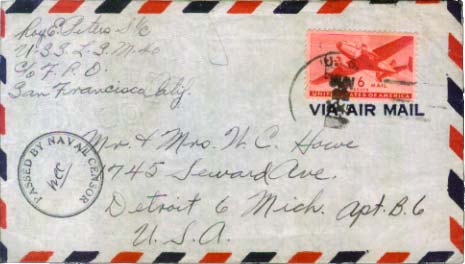 Roy E. Peters S 1/c
U.S.S. L.S.M. 40
C/o F.P.O.
San Francisco Calif.
6
AIR MAIL
UNITED STATES OF AMERICA
VIA AIR MAIL
PASSED BY NAVAL CENSOR
Mr. & Mrs. W. C. Howe
1745 Seward Ave.
Detroit 6 Mich. Apt. B.6
U.S.A.